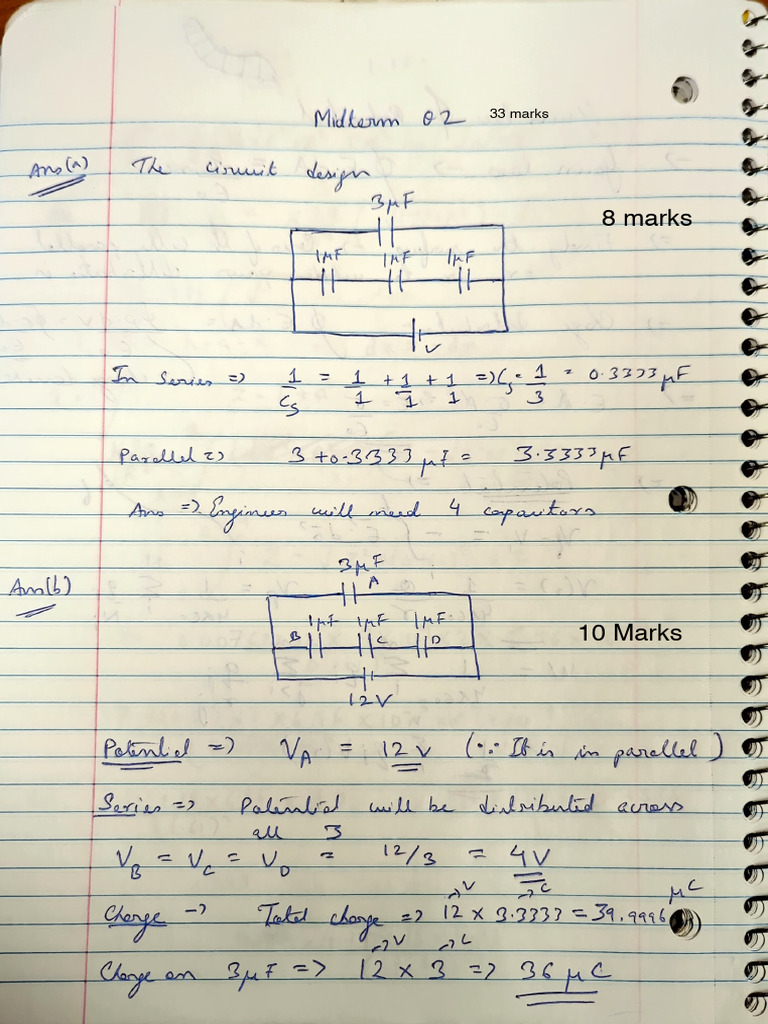 Midterm 02 33 marks
Ans(a) The circuit design
3μF
8 marks
1μF 1μF 1μF
V
In Series => 1/Cs = 1/1 + 1/1 + 1/1 => Cs = 1/3 = 0.3333 μF
Parallel => 3 + 0.3333 μF = 3.3333 μF
Ans => Engineer will need 4 capacitors
Ans(b)
3μF
A
1μF 1μF 1μF
B C D
10 Marks
12V
Potential => VA = 12 V (∵ It is in parallel)
Series => Potential will be distributed across
all 3
VB = VC = VD = 12/3 = 4V
→V →C μC
Charge → Total charge => 12 × 3.3333 = 39.9996
→V →C
Charge on 3μF => 12 × 3 => 36 μC